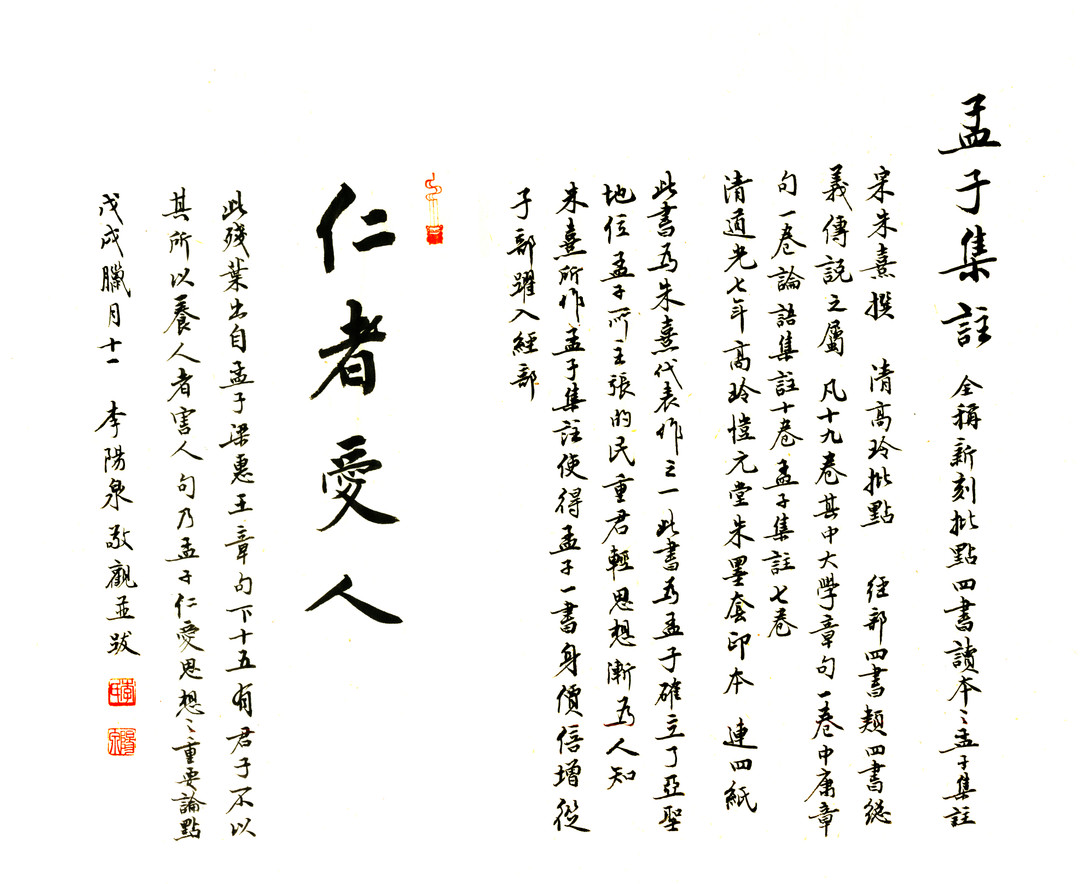 孟子集註 全稱新刻批點四書讀本〻孟子集註
宋朱熹撰 清高玲批點 經部四書類四書總
義傳說之屬 凡十九卷其中大學章句一卷中庸章
句一卷論語集註十卷孟子集註七卷
清道光七年高玲愷元堂朱墨套印本 連四紙
此書為朱熹代表作之一 此書為孟子確立了亞聖
地位孟子所主張的民重君輕思想漸為人知
朱熹所作孟子集註使得孟子一書身價倍增從
子部躍入經部
仁者愛人
此殘葉出自孟子梁惠王章句下十五有君子不以
其所以養人者害人句乃孟子仁愛思想〻重要論點
戊戌臘月十一 李陽泉敬觀並跋